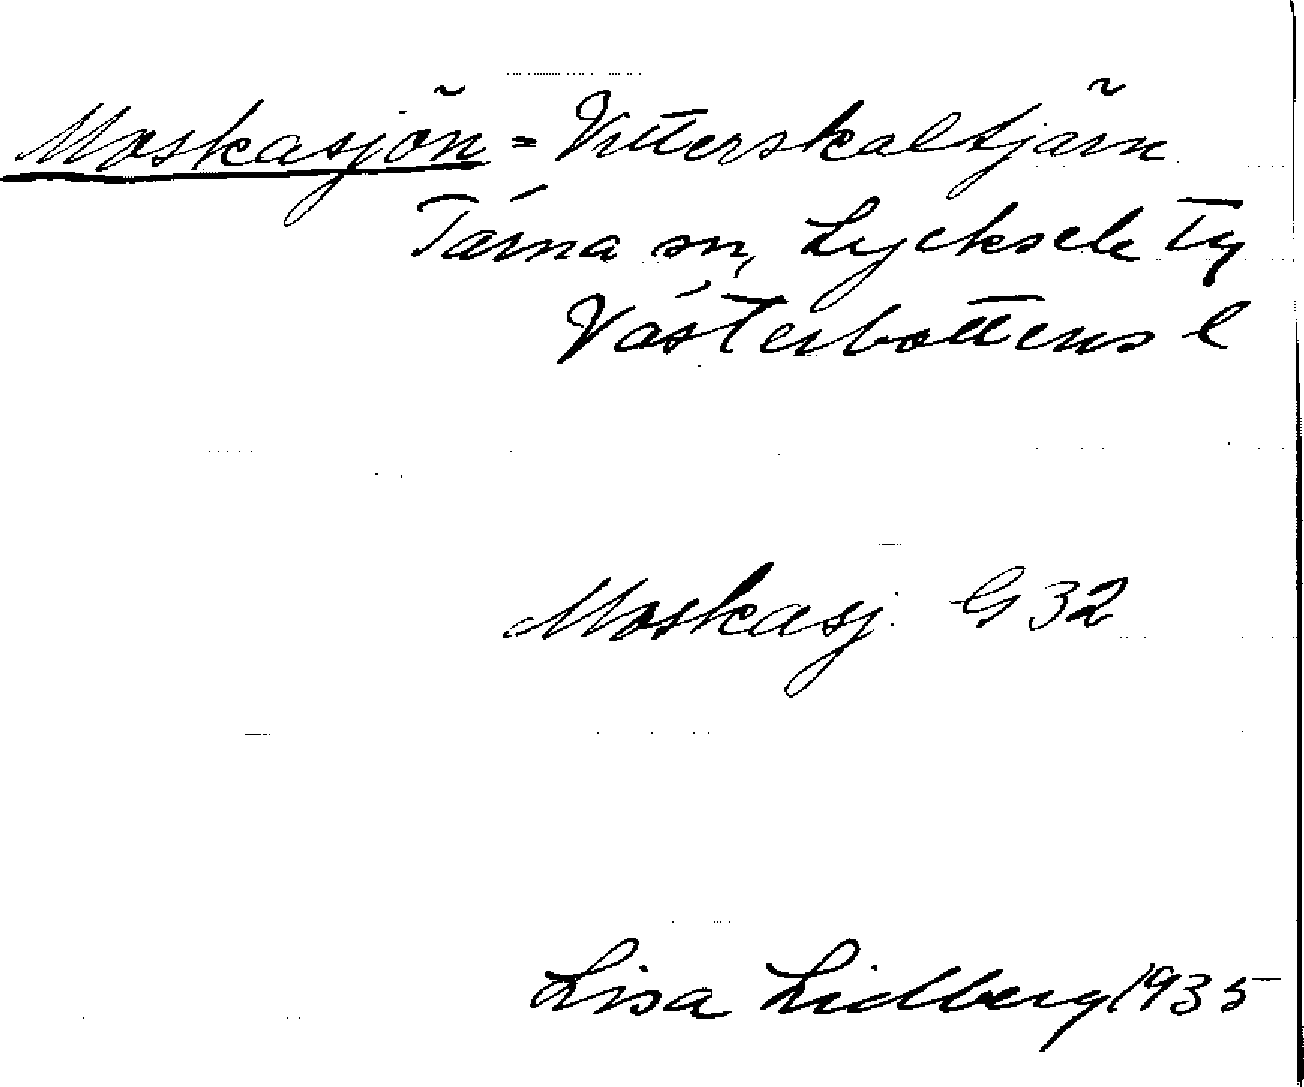 Moskasjön = Vitterskaltjärn
Tärna sn, Lycksele Ty
Västerbottens l
Moskasj. G 32
Lisa Lidberg 1935